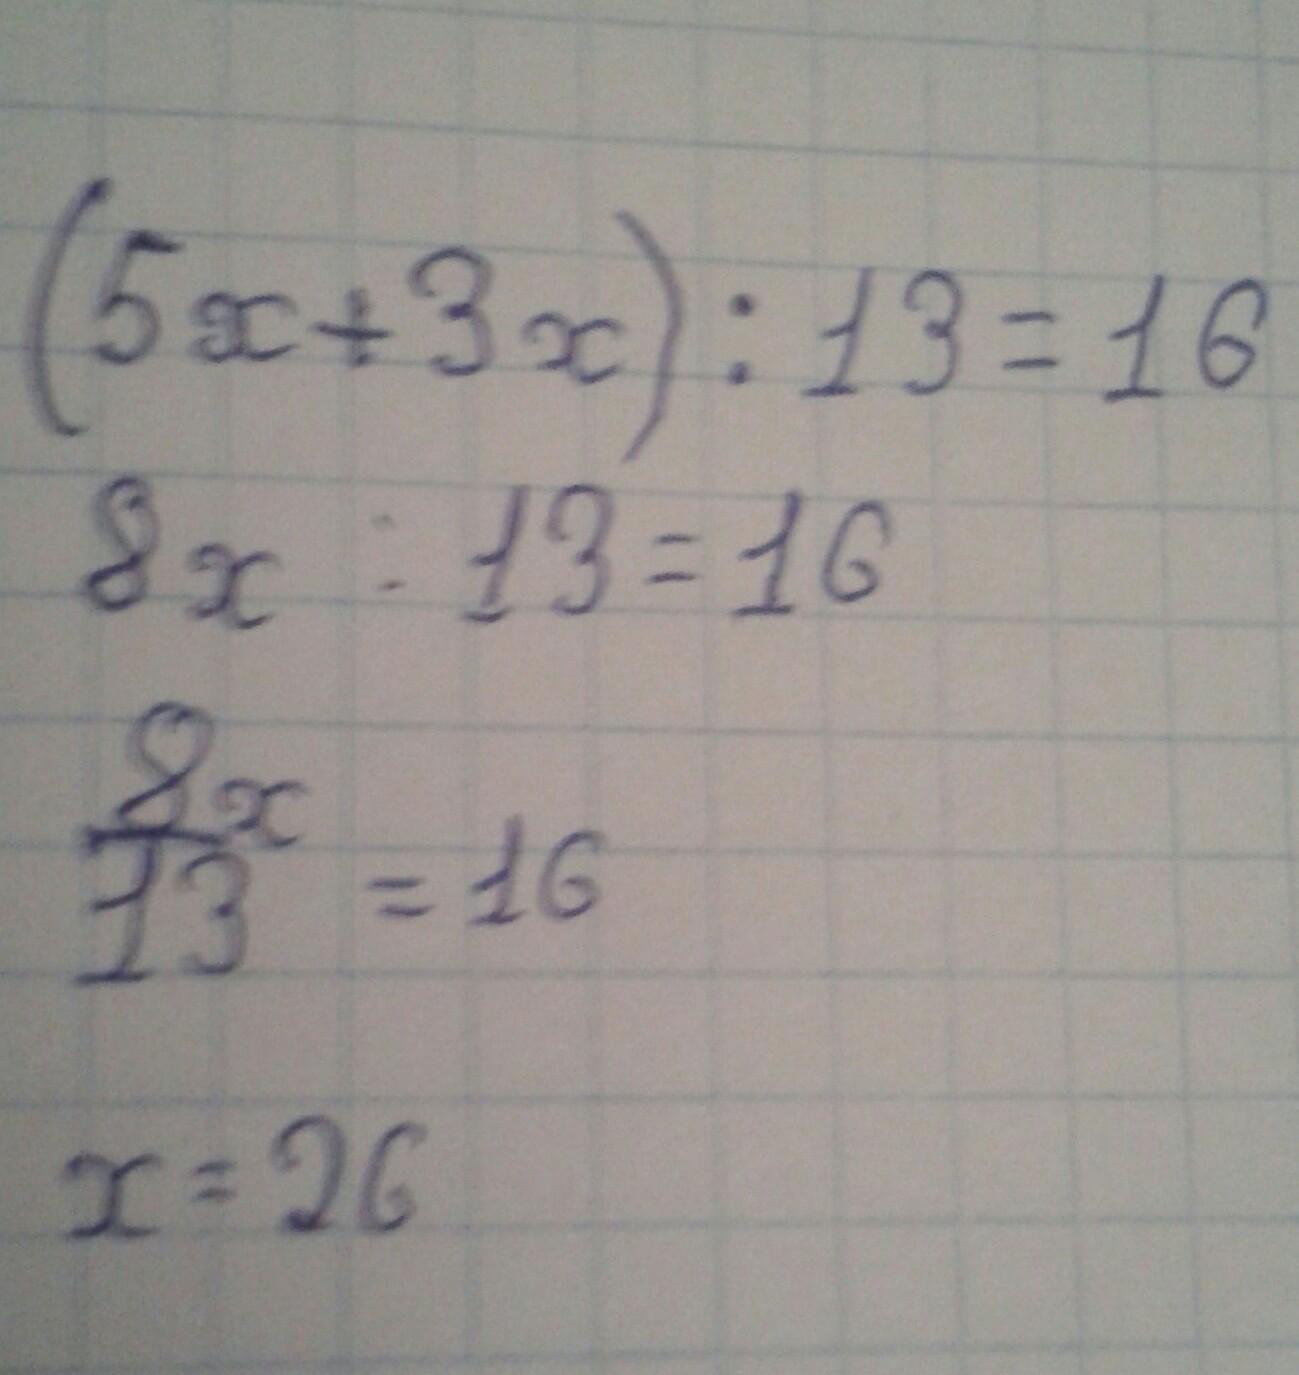 (5x+3x):13=16
8x:13=16
8x
13 =16
x=26